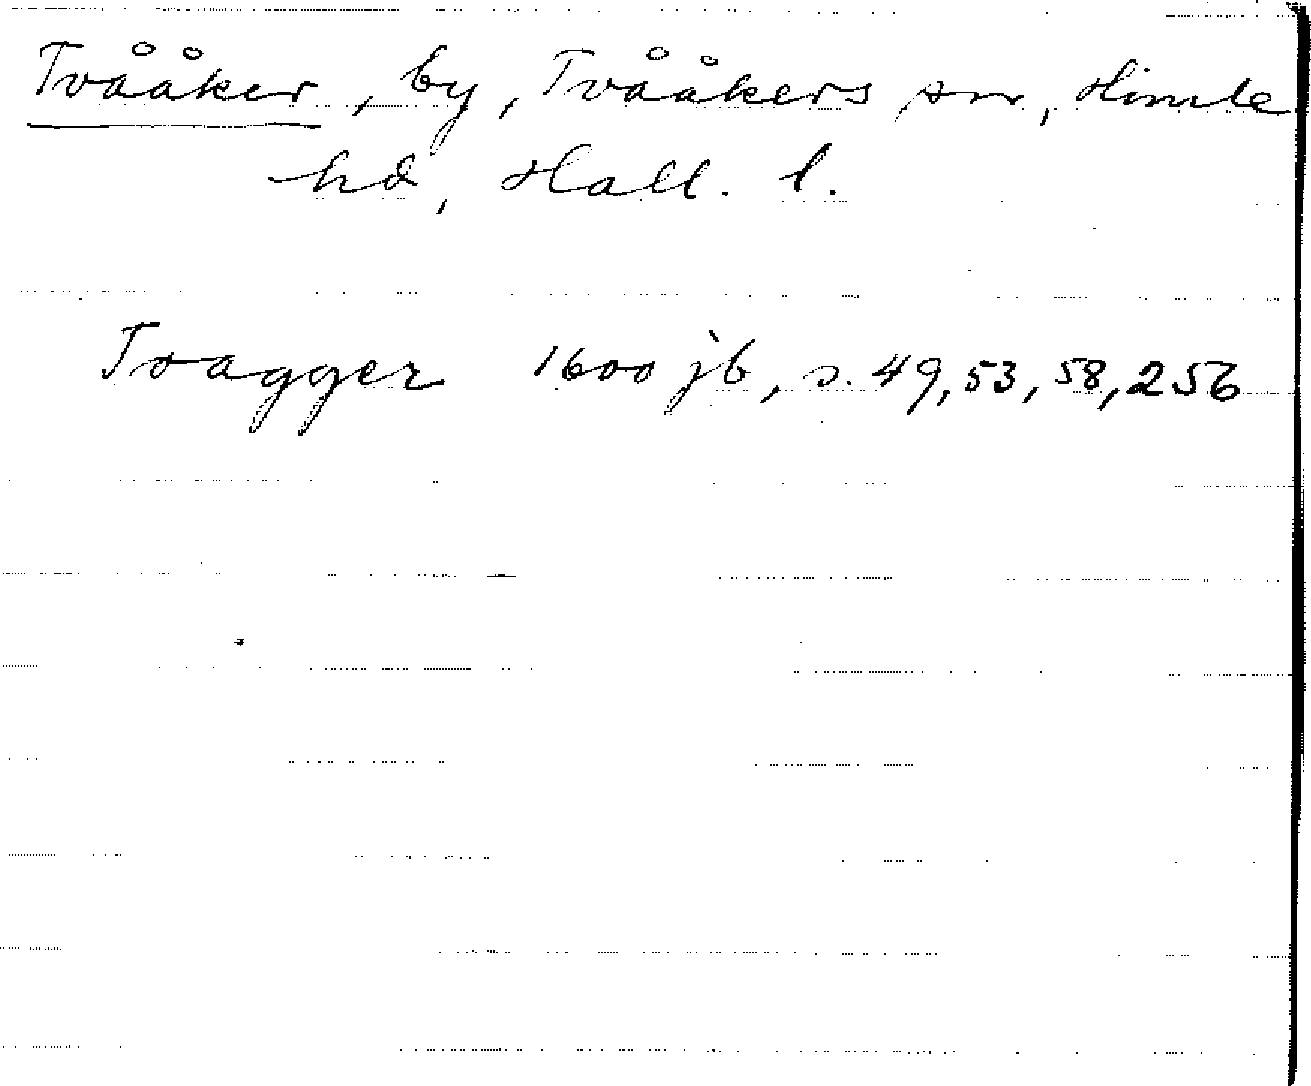 Tvååker, by, Tvååkers sn, Himle
hd, Hall. l.
Tvagger 1600 jb, s. 49, 53, 58, 256